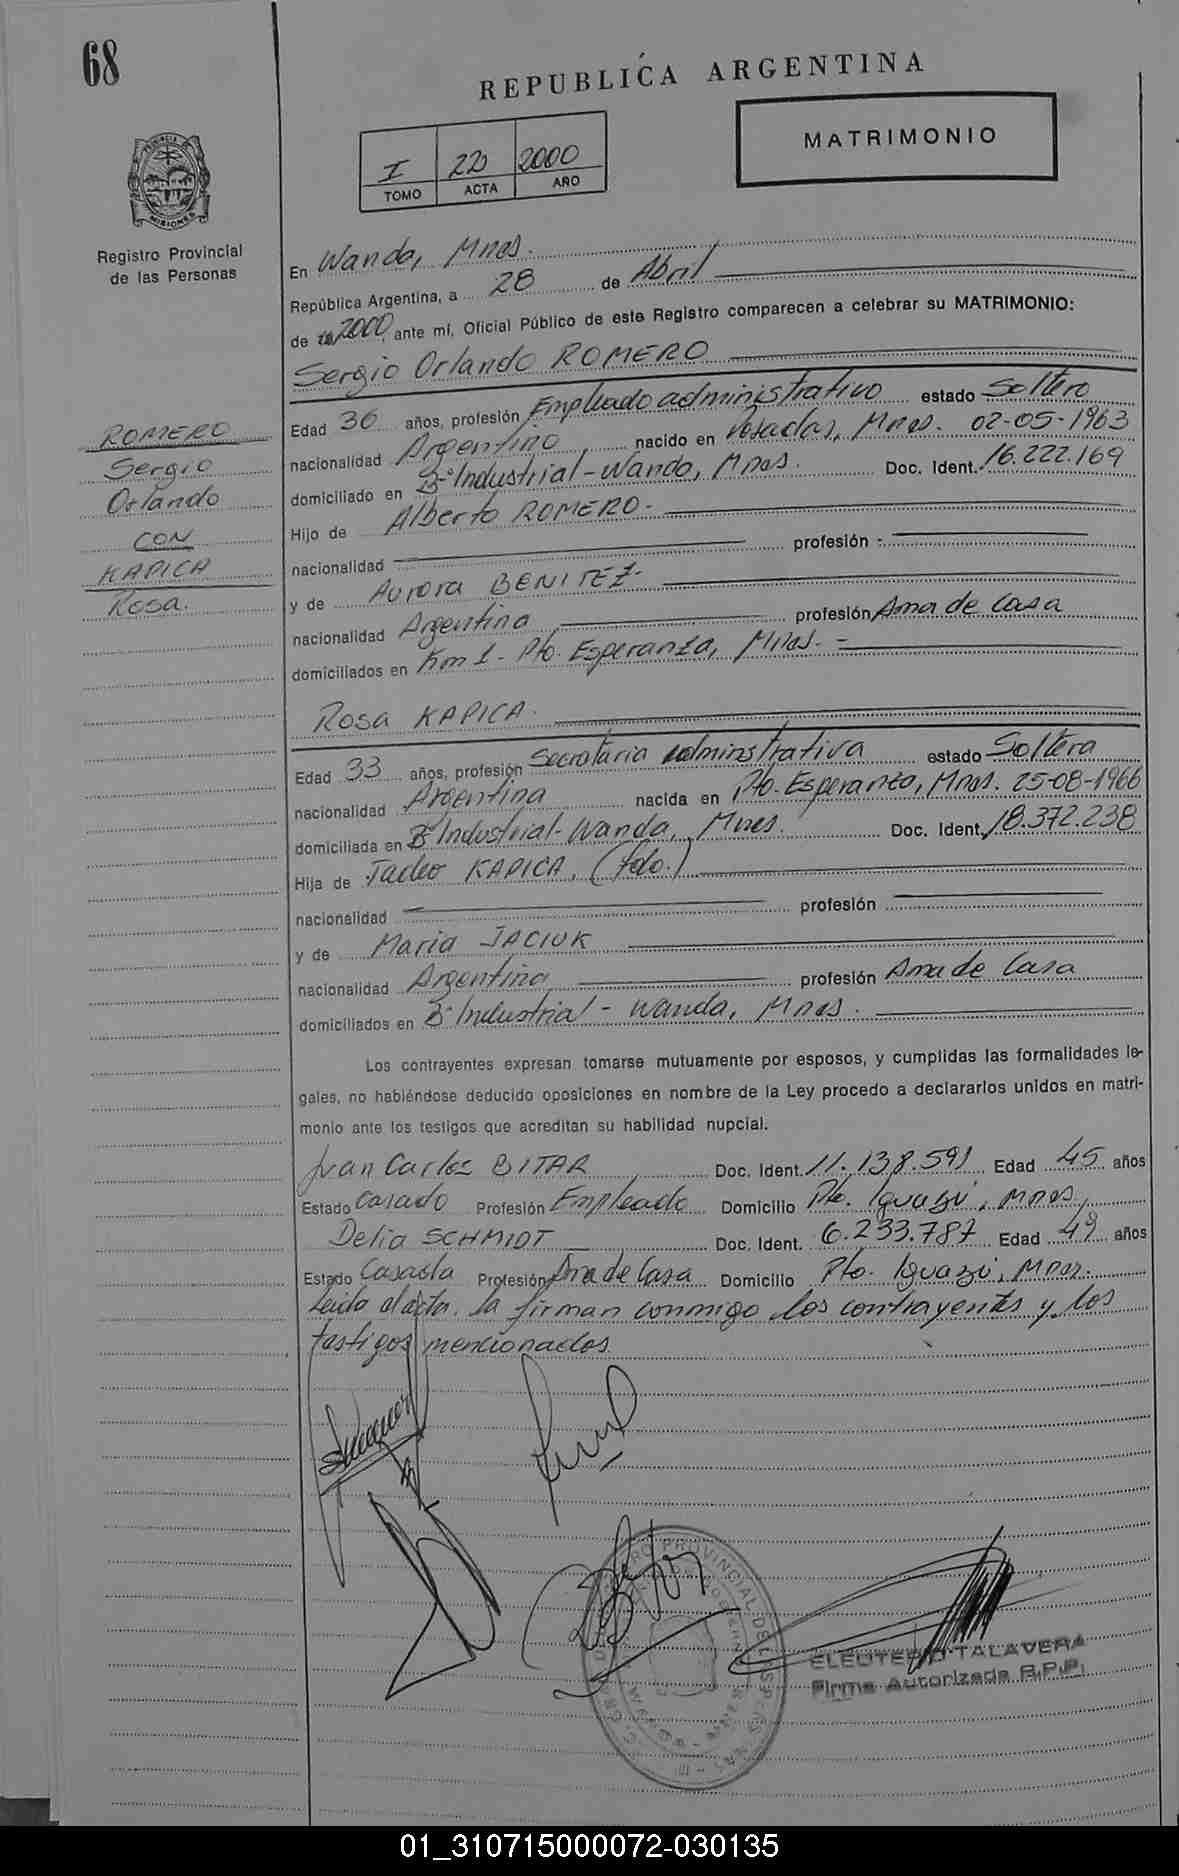 68
REPUBLICA ARGENTINA
MATRIMONIO
I 22 2000
TOMO ACTA AÑO
PROVINCIA DE
MISIONES
Registro Provincial
de las Personas
En Wanda, Mnes.
República Argentina, a 28 de Abril
de 2000, ante mí, Oficial Público de este Registro comparecen a celebrar su MATRIMONIO:
Sergio Orlando ROMERO
ROMERO
Sergio
Orlando
CON
KAPICA
Rosa.
Edad 36 años, profesión Empleado administrativo estado Soltero
nacionalidad Argentino nacido en Posadas, Mnes. 02-05-1963
domiciliado en B° Industrial - Wanda, Mnes. Doc. Ident. 16.222.169
Hijo de Alberto ROMERO.-
nacionalidad profesión :
y de Aurora BENITEZ-
nacionalidad Argentina profesión Ama de Casa
domiciliados en Km 1 - Pto. Esperanza, Mnes.-
Rosa KAPICA.
Edad 33 años, profesión Secretaria administrativa estado Soltera
nacionalidad Argentina nacida en Pto. Esperanza, Mnes. 25-08-1966
domiciliada en B° Industrial - Wanda, Mnes. Doc. Ident. 18.372.238
Hija de Tadeo KAPICA, (fdo.)
nacionalidad profesión
y de Maria JACIUK
nacionalidad Argentina profesión Ama de Casa
domiciliados en B° Industrial - Wanda, Mnes.
Los contrayentes expresan tomarse mutuamente por esposos, y cumplidas las formalidades le-
gales, no habiéndose deducido oposiciones en nombre de la Ley procedo a declararlos unidos en matri-
monio ante los testigos que acreditan su habilidad nupcial.
Juan Carlos BITAR Doc. Ident. 11.138.591 Edad 45 años
Estado Casado Profesión Empleado Domicilio Pto. Iguazú, Mnes.
Delia SCHMIDT Doc. Ident. 6.233.787 Edad 49 años
Estado Casada Profesión Ama de Casa Domicilio Pto. Iguazú, Mnes.
Leida el acta, la firman conmigo los contrayentes y los
testigos mencionados
ELEUTERIO TALAVERA
Firma Autorizada R.P.P.
01_310715000072-030135